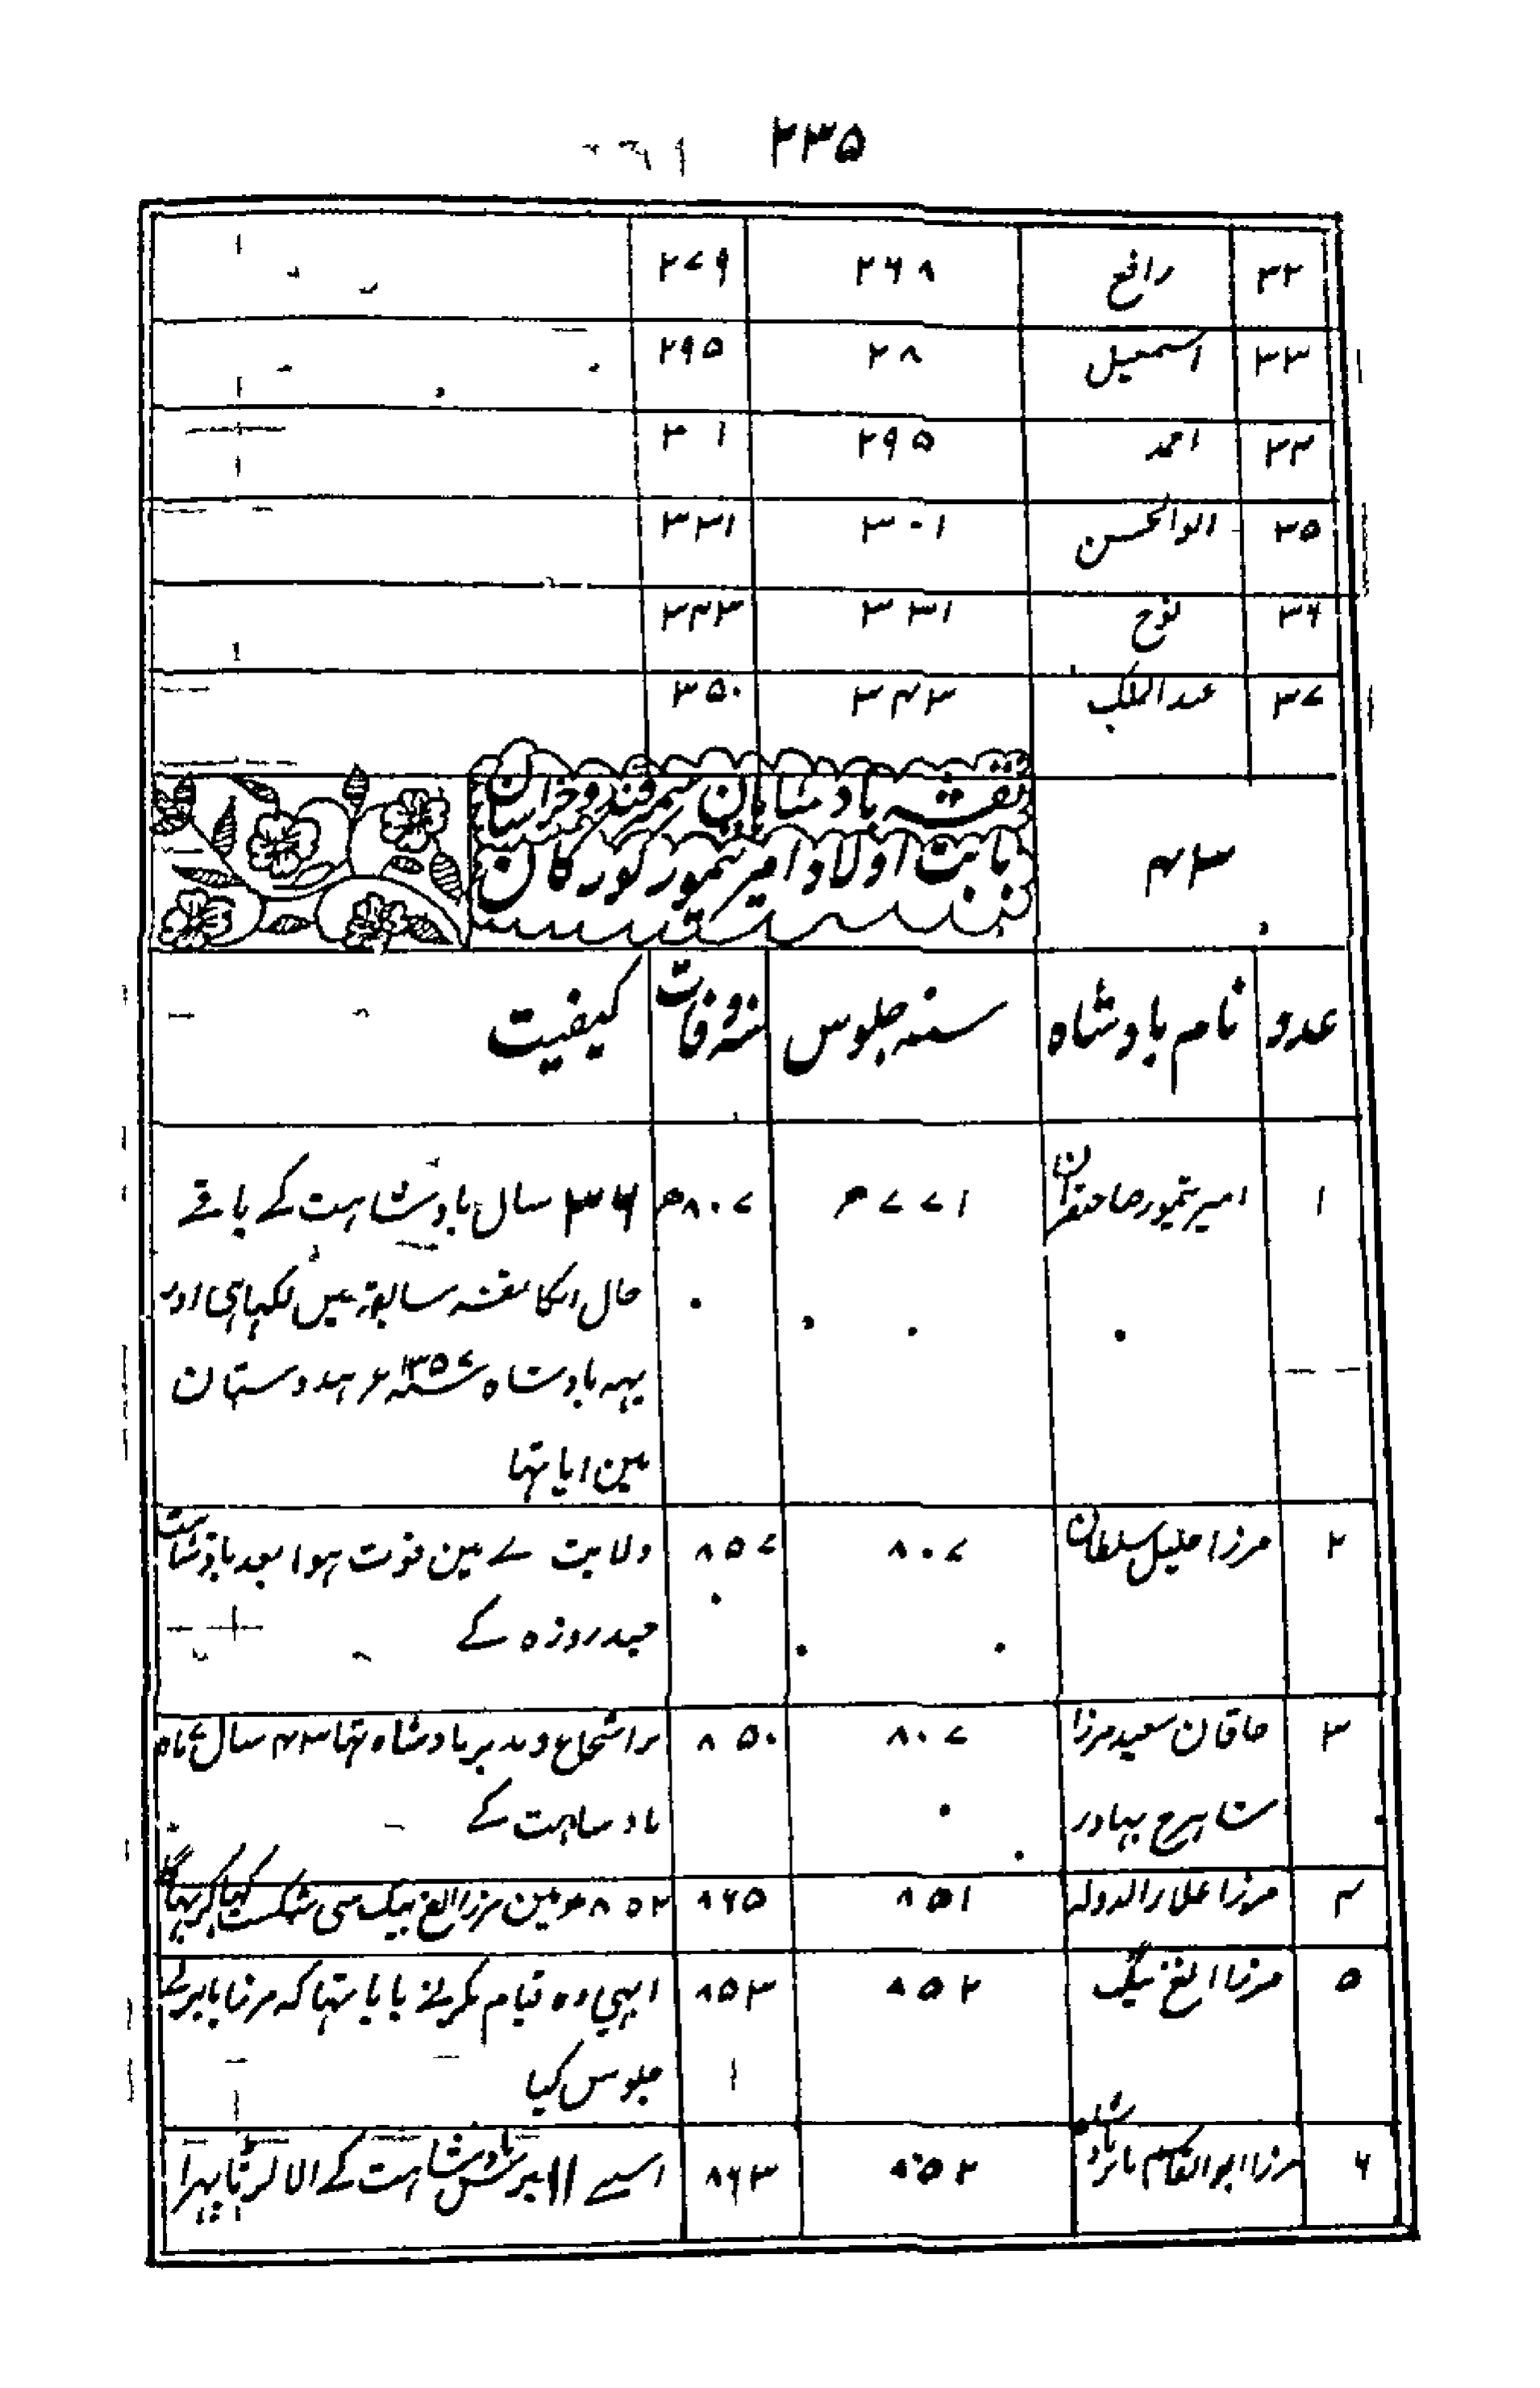 ۲۳۵
۳۲ رافع ۲۶۸ ۲۷۹
۳۳ اسمعیل ۲۸ ۲۹۵
۳۴ احمد ۲۹۵ ۳۰۱
۳۵ ابوالحسن ۳۰۱ ۳۳۱
۳۶ نوح ۳۳۱ ۳۴۳
۳۷ عبدالملک ۳۴۳ ۳۵۰
۴۳ نقشہ بادشاہان سمرقند و خراسان
بابت اولاد امیر تیمور کورکان
عدد نام بادشاہ سنہ جلوس سنہ وفات کیفیت
۱ امیر تیمور صاحبقران ۷۷۱ ۸۰۷ ۳۶ سال بادشاہت کے باقے
حال اسکا نقشہ سابقہ میں لکہاہی اور
یہہ بادشاہ سنہ ۱۳۵۷ء ہندوستان
مین ایا تہا
۲ مرزا خلیل سلطان ۸۰۷ ۸۵۷ ولایت رے مین فوت ہوا بعد بادشاہت
چند روزہ کے
۳ خاقان سعید مرزا ۸۰۷ ۸۵۰ برا شجاع و مدبر بادشاہ تہا ۴۳ سال ماہ
شاہرخ بہادر بادشاہت کے
۴ مرزا علاء الدولہ ۸۵۱ ۸۶۵ ۸۵۲ء مین مرزا الغ بیگ سی شکست کہا کر بہاگا
۵ مرزا الغ بیگ ۸۵۲ ۸۵۳ ابہی وہ قیام نکرنے پایا تہا کہ مرزا بابر نے
جلوس کیا
۶ مرزا ابوالقاسم بابر بادشاہ ۸۵۲ ۸۶۳ اسنے ۱۱ برس بادشاہت کے